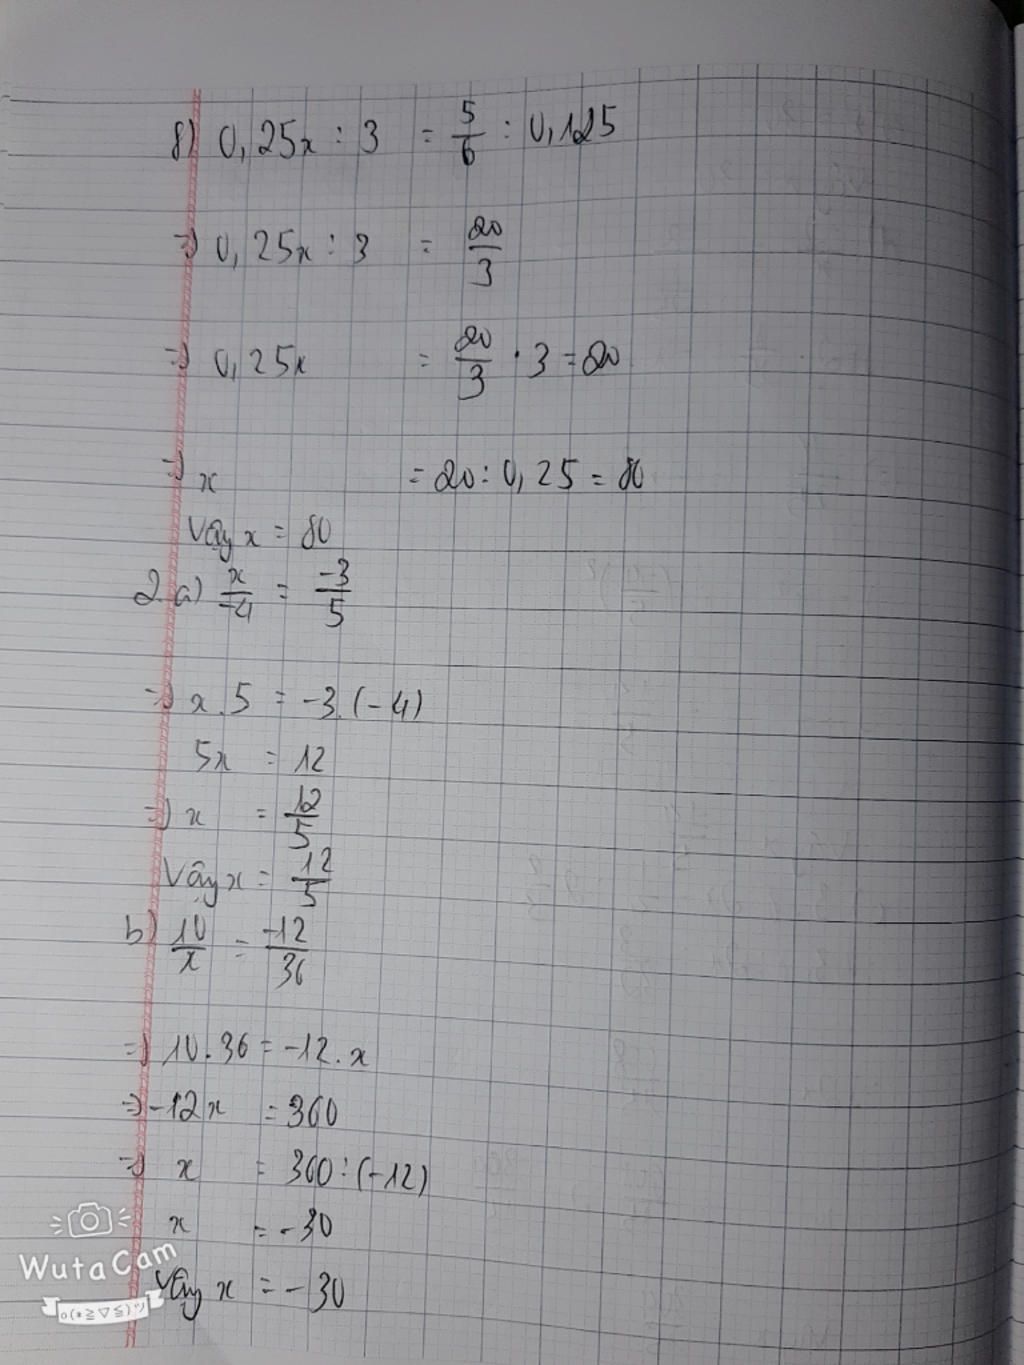 8) 0,25x : 3 = 5/6 : 0,125
=> 0,25x : 3 = 20/3
=> 0,25x = 20/3 . 3 = 20
=> x = 20 : 0,25 = 80
Vậy x = 80
2. a) x/-4 = -3/5
=> x.5 = -3.(-4)
5x = 12
=> x = 12/5
Vậy x = 12/5
b) 10/x = -12/36
=> 10.36 = -12.x
=> -12x = 360
=> x = 360 : (-12)
x = -30
Vậy x = -30
WutaCam
o(*≧▽≦)ツ